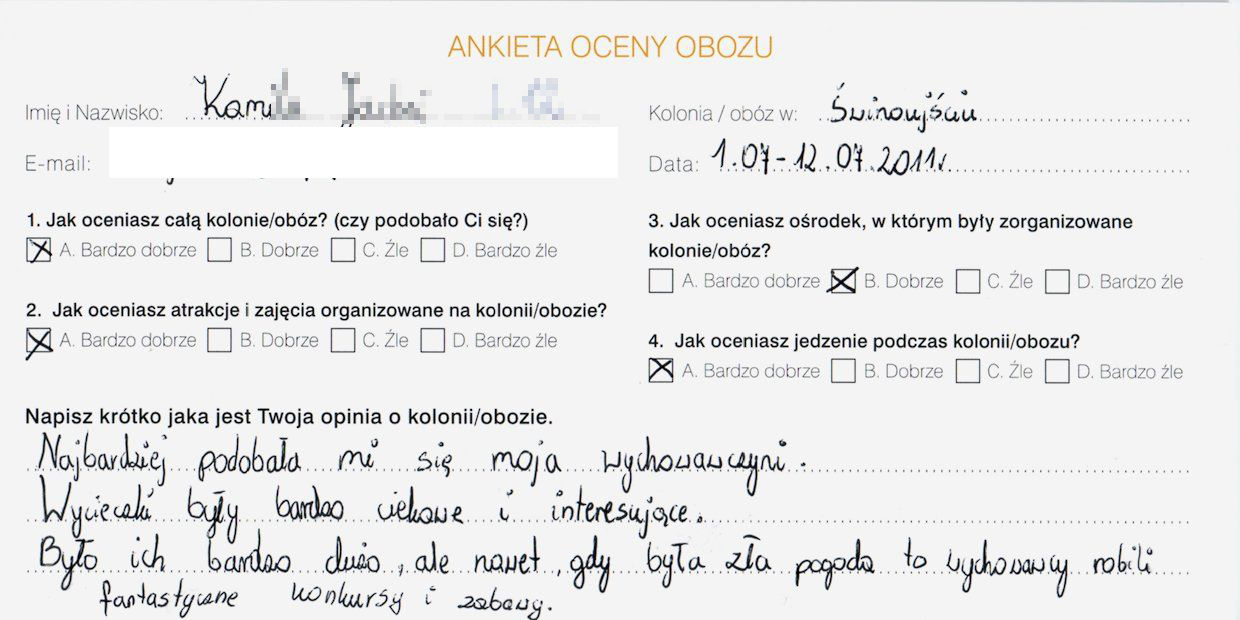 ANKIETA OCENY OBOZU
Imię i Nazwisko:
Kolonia / obóz w: Świnoujściu
E-mail:
Data: 1.07-12.07.2011r.
1. Jak oceniasz całą kolonie/obóz? (czy podobało Ci się?)
A. Bardzo dobrze B. Dobrze C. Źle D. Bardzo źle
2. Jak oceniasz atrakcje i zajęcia organizowane na kolonii/obozie?
A. Bardzo dobrze B. Dobrze C. Źle D. Bardzo źle
3. Jak oceniasz ośrodek, w którym były zorganizowane
kolonie/obóz?
A. Bardzo dobrze B. Dobrze C. Źle D. Bardzo źle
4. Jak oceniasz jedzenie podczas kolonii/obozu?
A. Bardzo dobrze B. Dobrze C. Źle D. Bardzo źle
Napisz krótko jaka jest Twoja opinia o kolonii/obozie.
Najbardziej podobała mi się moja wychowawczyni.
Wycieczki były bardzo ciekawe i interesujące.
Było ich bardzo dużo, ale nawet, gdy była zła pogoda to wychowawcy robili
fantastyczne konkursy i zabawy.